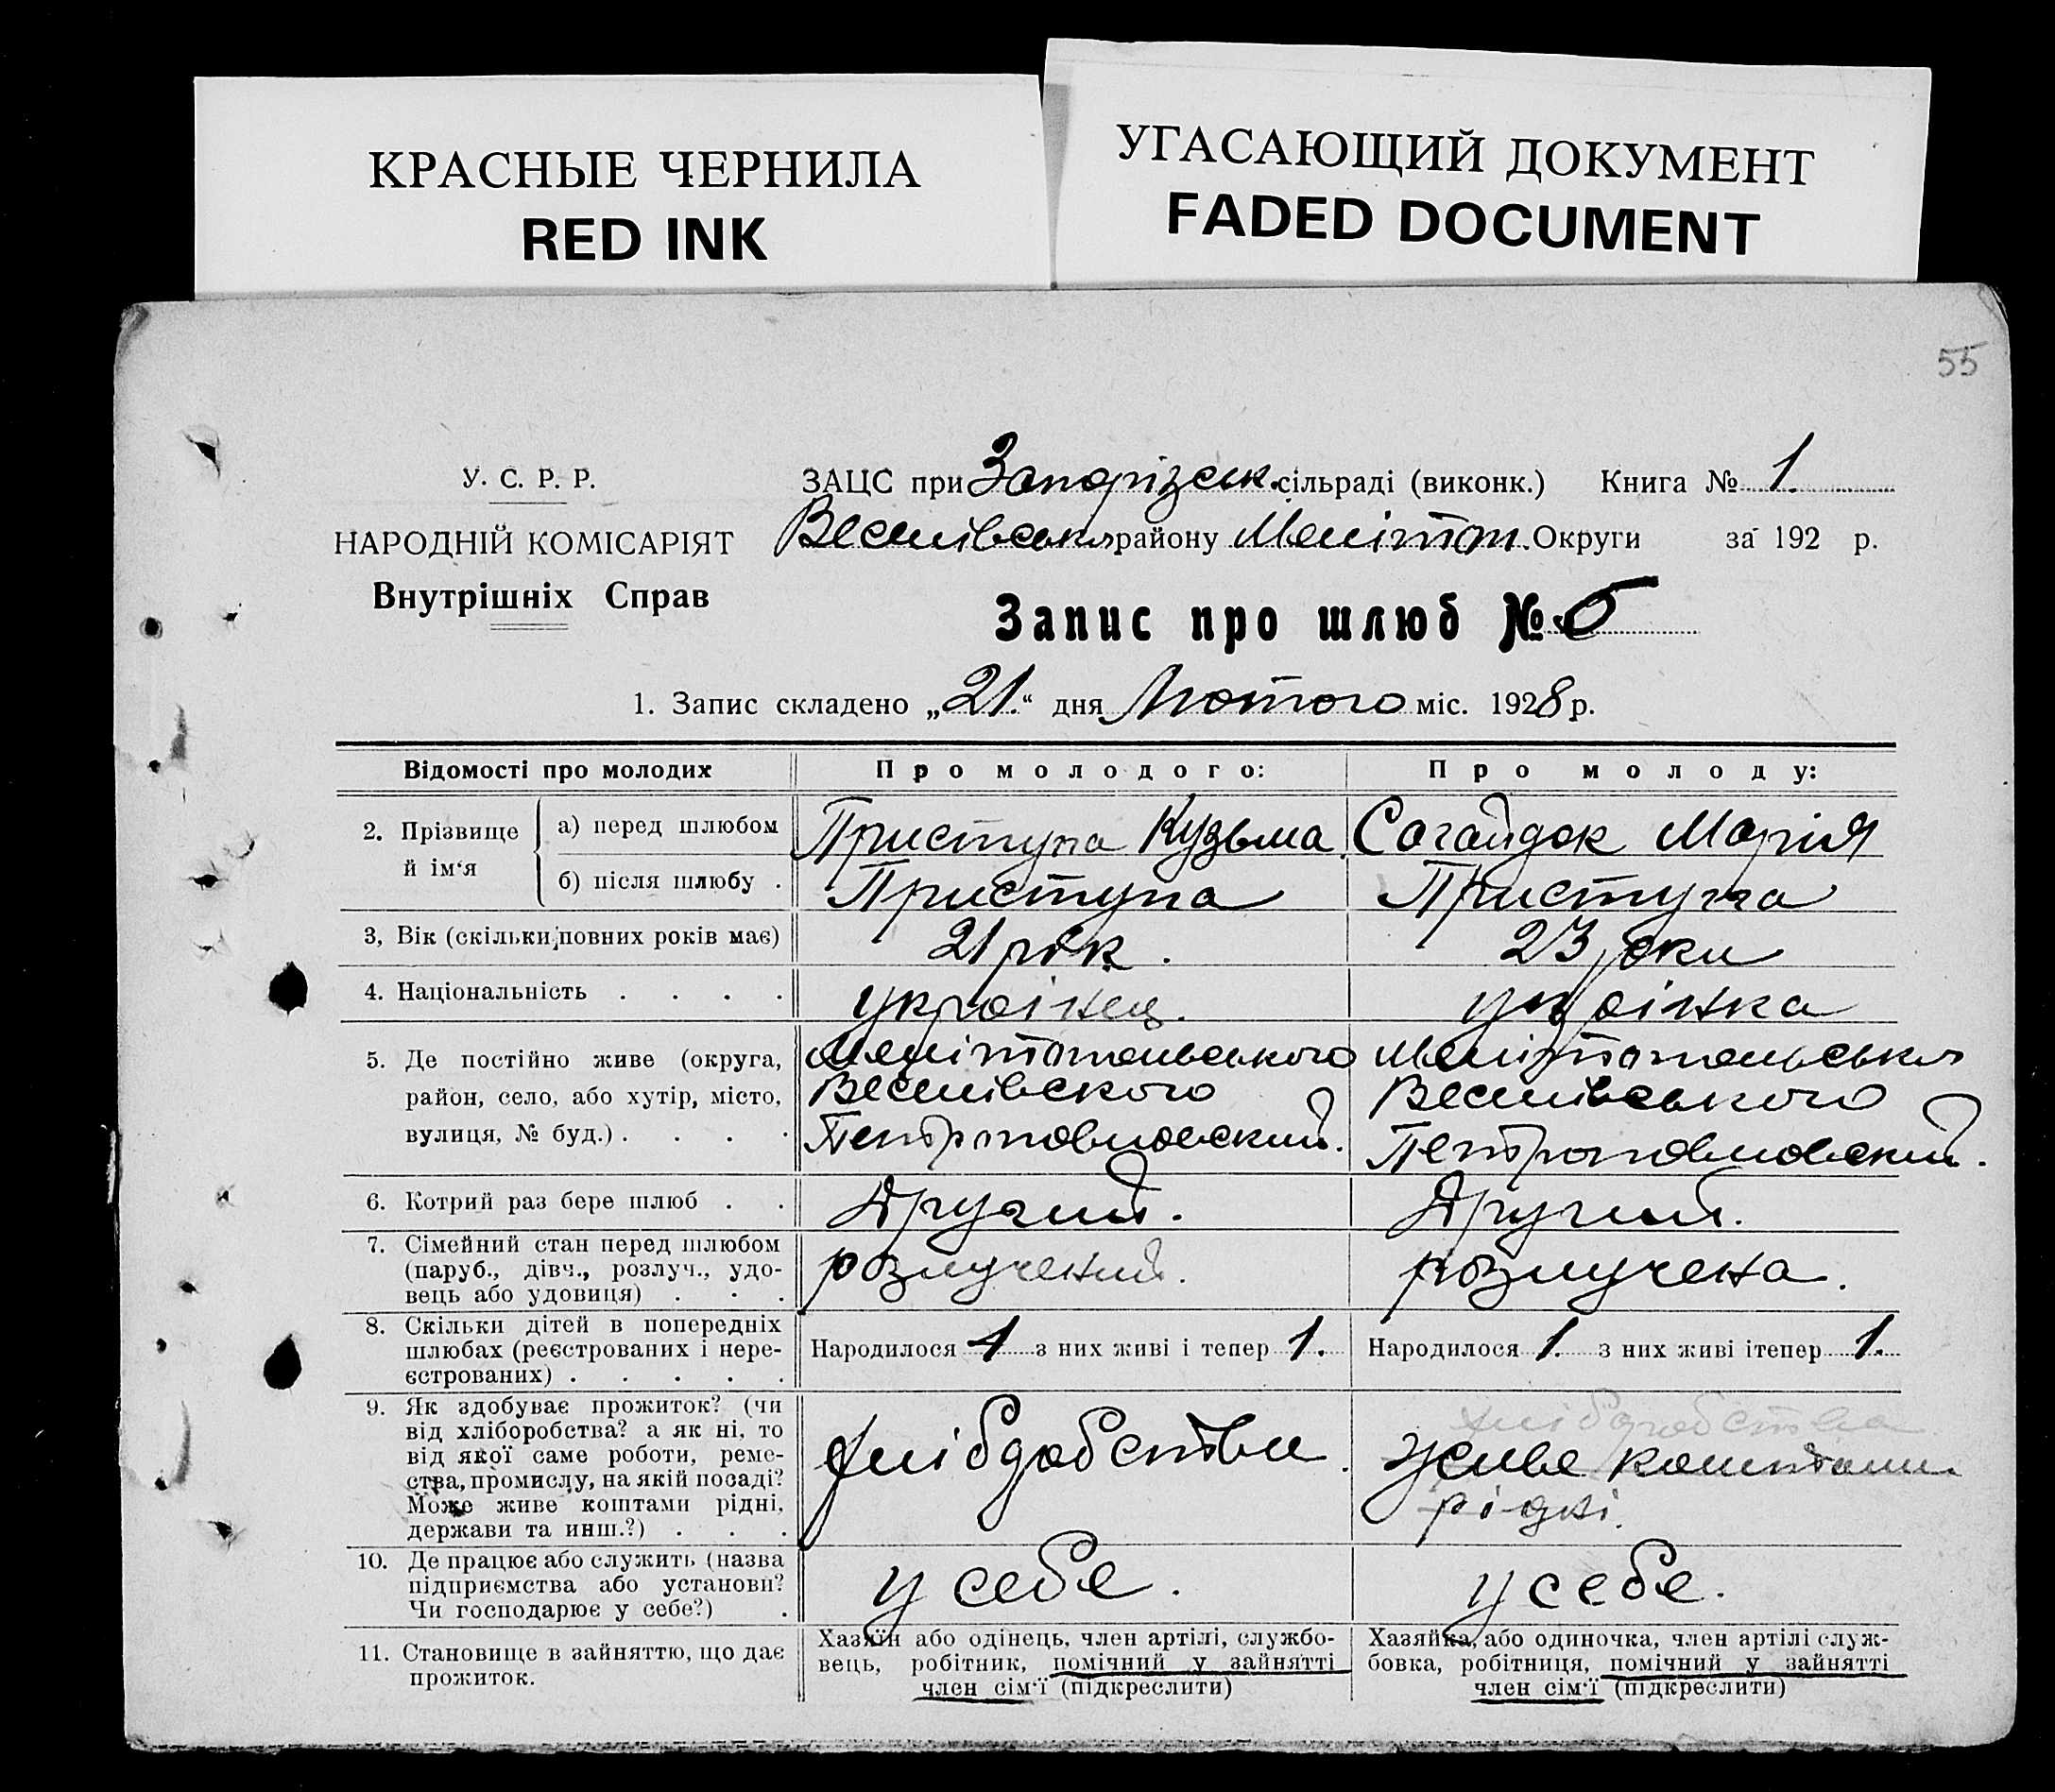 КРАСНЫЕ ЧЕРНИЛА
RED INK
УГАСАЮЩИЙ ДОКУМЕНТ
FADED DOCUMENT
55
У. С. Р. Р.
НАРОДНІЙ КОМІСАРІЯТ
Внутрішніх Справ
ЗАЦС при Запорізськ. сільраді (виконк.) Книга № 1.
Веселівськ району Мелітоп. Округи за 192 р.
Запис про шлюб № 5
1. Запис складено „21“ дня Лютого міс. 1928 р.
Відомості про молодих Про молодого: Про молоду:
2. Прізвище й ім‘я
а) перед шлюбом Приступа Кузьма. Согайдак Марія
б) після шлюбу . Приступа Приступа
3, Вік (скільки повних років має) 21 рік. 23 роки
4. Національність . . . . українец. українка
5. Де постійно живе (округа, Мелітопольського Мелітопольськ
район, село, або хутір, місто, Веселівского Веселівського
вулиця, № буд.) . . . .
6. Котрий раз бере шлюб . . Другий. Другий.
7. Сімейний стан перед шлюбом
(паруб., дівч., розлуч., удо-
вець або удовиця) . . . розлучений. розлучена.
8. Скільки дітей в попередніх
шлюбах (реєстрованих і нере-
єстрованих) . . . . .
Народилося 1 з них живі і тепер 1. Народилося 1. з них живі ітепер 1.
9. Як здобуває прожиток? (чи
від хліборобства? а як ні, то
від якої саме роботи, реме-
ства, промислу, на якій посаді?
Може живе коштами рідні,
держави та инш.?) . . .
хлібдобства.
Живе коштами
рідні.
10. Де працює або служить (назва
підприємства або установи?
Чи господарює у себе?) .
у себе. у себе.
11. Становище в зайняттю, що дає
прожиток.
Хазяїн або одінець, член артілі, службо-
вець, робітник, помічний у зайнятті
член сім‘ї (підкреслити)
Хазяйка, або одиночка, член артілі служ-
бовка, робітниця, помічний у зайнятті
член сім‘ї (підкреслити)